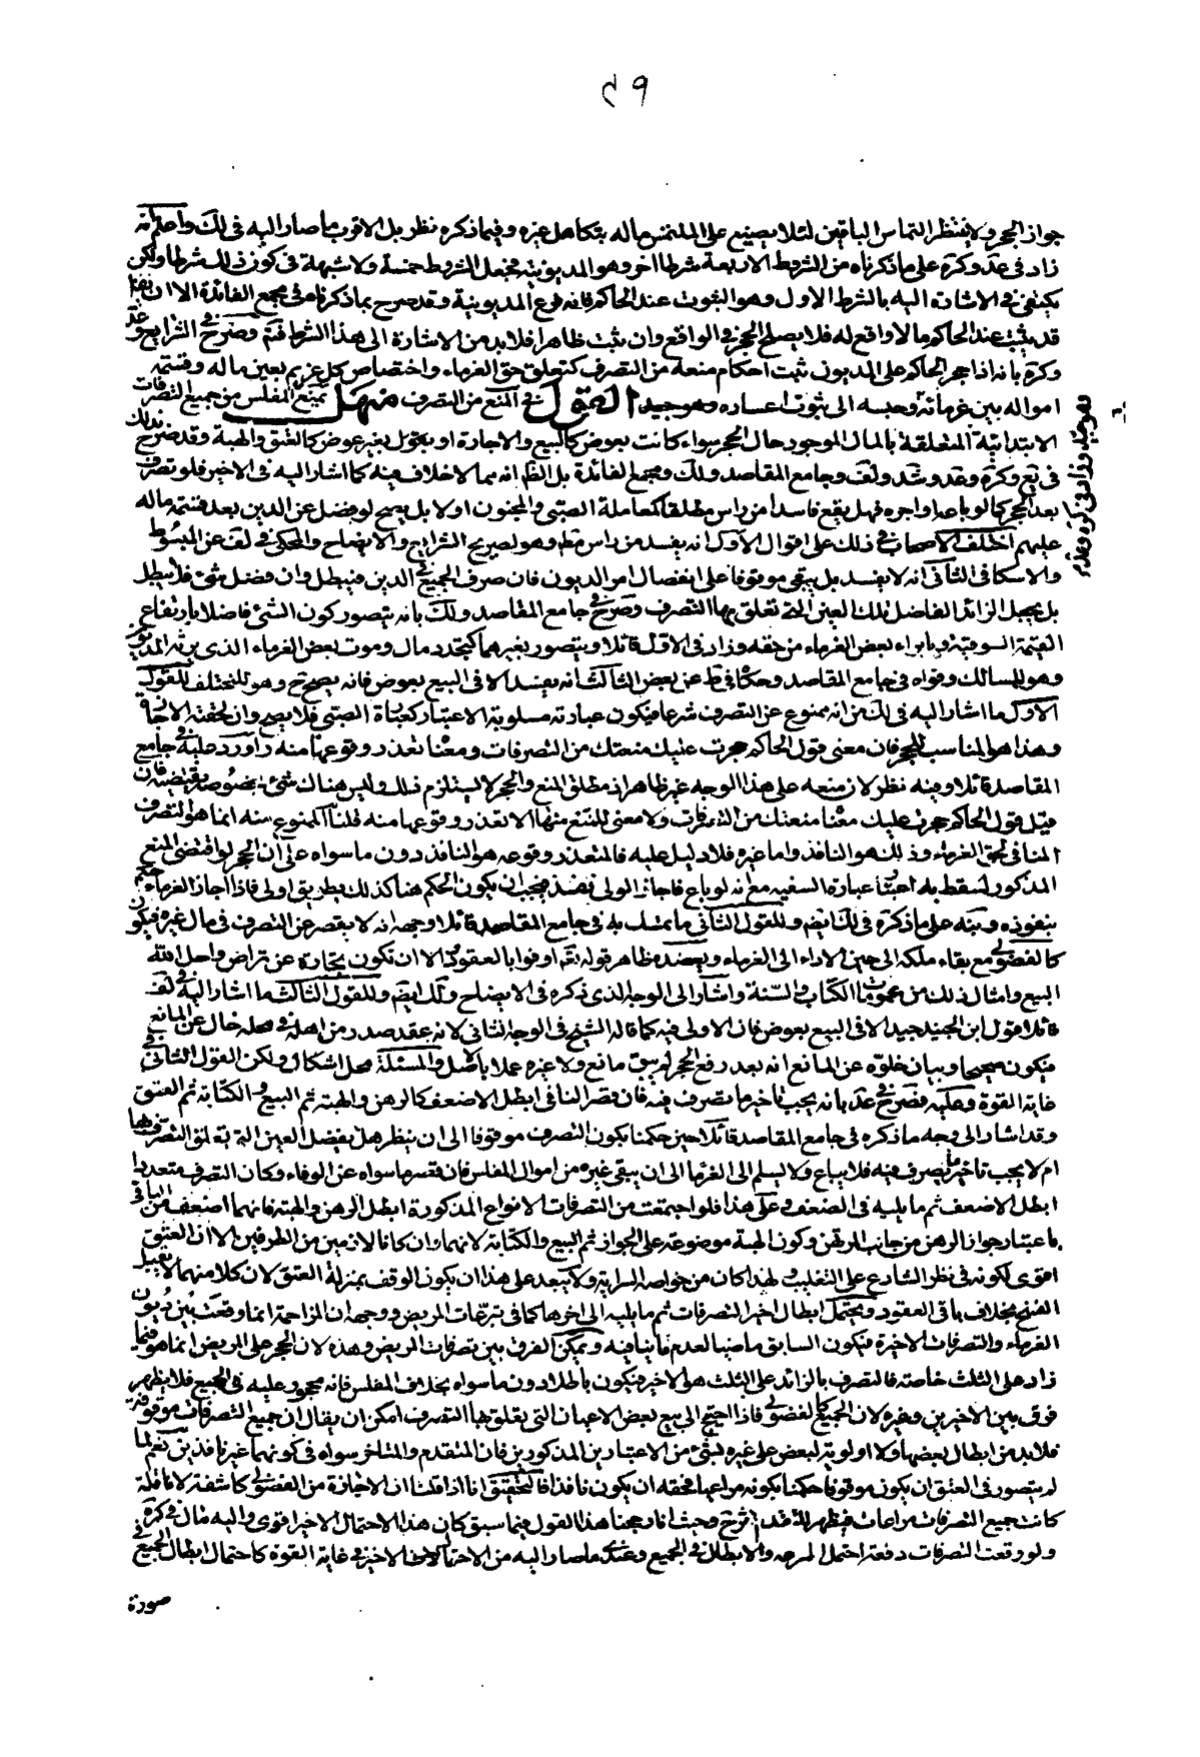 ٤٩
جواز الحجر ولا ينتظر التماس الباقين لئلا يضيع على الملتمس ماله بتكاهل غيره وفيما ذكره نظر بل الاقرب ما صار اليه فى لك واعلم انه
زاد فى عد وكره على ما ذكرناه من الشروط الاربعة شرطا اخر وهو المديونية فجعل الشروط خمسة ولا شبهة فى كون ذلك شرطا ولكن
يكتفى فى الاشارة اليه بالشرط الاول وهو الثبوت عند الحاكم فانه فرع المديونية وقد صرح بما ذكرناه فى مجمع الفائدة الا ان
قد يثبت عند الحاكم ما لا واقع له فلا يصلح الحجر فى الواقع وان ثبت ظاهرا فلا بد من الاشارة الى هذا الشرط فتم وصرح فى الشرايع وعد
وكره بانه اذا حجر الحاكم على المديون ثبت احكام منعه من التصرف كتعلق حق الغرماء واختصاص كل غريم بعين ماله وقسمة
امواله بين غرمائه وحبسه الى ثبوت اعساره وهو جيد القول فى المنع من التصرف منهل يمنع المفلس من جميع التصرفات
الابتدائية المتعلقة بالمال الموجود حال الحجر سواء كانت بعوض كالبيع والاجارة او بغير عوض كالعتق والهبة وقد صرح بذلك
فى يع وكره وعد وشد ولف وجامع المقاصد ولك ومجمع الفائدة بل الظ انه مما لا خلاف فيه كما اشار اليه فى الاخير فلو تصرف
بعد الحجر كما لو باع او اجره فهل يقع فاسدا من راس مطلقا كمعاملة الصبى والمجنون او لا بل يصح لو فضل عن الدين بعد قسمة ماله
عليهم اختلف الاصحاب فى ذلك على اقوال الاول انه يفسد من راس مط وهو لصريح الشرايع والايضاح والمحكى فى لف عن المبسوط
والاسكافى الثانى انه لا يفسد بل يبقى موقوفا على انفصال امر الديون فان صرف الجميع فى الدين فيبطل وان فضل شئ فلا يبطل
بل يجعل الزائد الفاضل تلك العين التى تعلق بها التصرف وصرح فى جامع المقاصد ولك بانه يتصور كون الشئ فاضلا بارتفاع
القيمة السوقية وبابراء بعض الغرماء من حقه وزاد فى الاول قائلا ويتصور بغيرهما كتجدد مال وموت بعض الغرماء الذى يرثه المديون
وهو للمسالك وقواه فى جامع المقاصد وحكاه فى ط عن بعض الثالث انه يفسد الا فى البيع بعوض فانه يصح وهو للمختلف للقول
الاول ما اشار اليه فى لك من انه ممنوع عن التصرف شرعا فيكون عبارته مسلوبة الاعتبار كعبارة الصبى فلا يصح وان لحقته الاجازة
وهذا هو المناسب للحجر فان معنى قول الحاكم حجرت عليك منعتك من التصرفات ومعنا تعذر وقوعها منه واورد عليه فى جامع
المقاصد قائلا وفيه نظر لان منعه على هذا الوجه غير ظاهر اذ مطلق المنع والحجر لا يستلزم ذلك وليس هناك شئ بخصوصه يقتضيه فان
قيل قول الحاكم حجرت عليك معناه منعتك من التصرفات ولا معنى للمنع منها الا تعذر وقوعها منه قلنا الممنوع منه انما هو التصرف
المنافى لحق الغرماء وذلك هو النافذ واما غيره فلا دليل عليه فالمتعذر وقوعه هو النافذ دون ما سواه على ان الحجر لو اقتضى المنع
المذكور لسقط به اعتبار عبارة السفيه مع انه لو باع فاجاز الولى نفذ فيجب ان يكون الحكم هنا كذلك بطريق اولى فاذا اجاز الغرماء حكم
بنفوذه ونبه على ما ذكره فى لك ايضا وللقول الثانى ما تمسك به فى جامع المقاصد قائلا وجهه انه لا يقصر عن التصرف فى مال غيره فيكون
كالفضولى مع بقاء ملكه الى حين الاداء الى الغرماء ويعضده ظاهر قوله تعم اوفوا بالعقود الا ان تكون تجارة عن تراض واحل الله
البيع وامثال ذلك من عمومات الكتاب والسنة واشار الى الوجه الذى ذكره فى الايضاح ولك ايضا وللقول الثالث ما اشار اليه فى لف
قائلا قول ابن الجنيد جيد الا فى البيع بعوض فان الاولى فيه كما قاله الشيخ فى الوجه الثانى لانه عقد صدر من اهله فى محله خال عن المانع
فيكون صحيحا وبيان خلوه عن المانع انه بعد رفع الحجر لم يبق مانع ولا غيره عملا بالاصل والمسئلة محل اشكال ولكن القول الثانى فى
غاية القوة وعليه فصرح فى عد بانه يجب تاخير ما تصرف فيه فان قصر الباقى ابطل الاضعف كالرهن والهبة ثم البيع والكتابة ثم العتق
وقد اشار الى وجه ما ذكره فى جامع المقاصد قائلا حين حكمنا بكون التصرف موقوفا الى ان ينظر هل يفضل العين التى تعلق التصرف بها
ام لا يجب تاخير ما تصرف فيه فلا يباع ولا يسلم الى الغرماء الى ان يبقى غيره من اموال المفلس فان قصر ما سواه عن الوفاء وكان التصرف متعددا
ابطل الاضعف ثم ما يليه فى الضعف وعلى هذا فلو اجتمعت من التصرفات الانواع المذكورة ابطل الرهن والهبة فانهما اضعف من الباقى
باعتبار جواز الرهن من جانب المرتهن وكون الهبة موضوعة على الجواز ثم البيع والكتابة لانهما وان كانا لازمين من الطرفين الا ان العتق
اقوى لكونه فى نظر الشارع على التغليب ولهذا كان من خواصه السراية ولا يبعد على هذا ان يكون الوقف بمنزلة العتق لان كلا منهما لا يقبل
الفسخ بخلاف باقى العقود ويحتمل ابطال اخير التصرفات ثم ما يليه الى اخرها كما فى تبرعات المريض ووجهه ان المزاحمة انما وقعت بين ديون
الغرماء والتصرفات الاخيرة فيكون السابق ماضيا لعدم ما ينافيه ويمكن الفرق بين تصرفات المريض وهذه لان الحجر على المريض انما هو فيما
زاد على الثلث خاصة فالتصرف بالزائد على الثلث هو الاخير فيكون باطلا دون ما سواه بخلاف المفلس فانه محجور عليه فى الجميع فلا يظهر
فرق بين الاخيرين وغيره لان الجميع كالفضولى فاذا احتيج الى بيع بعض الاعيان التى تعلق بها التصرف امكن ان يقال ان جميع التصرفات موقوفة
فلا بد من ابطال بعضها ولا اولوية لبعض على غيره لشئ من الاعتبارين المذكورين فان المتقدم والمتاخر سواه فى كونهما غير نافذين نعم لما
لم يتصور فى العتق ان يكون موقوفا حكمنا بكونه مراعا فحقه ان يكون نافذا فالتحقيق انا اذا قلنا ان الاجازة من الفضولى كاشفة لا ناقلة
كانت جميع التصرفات مراعات فيظهر للاقدم ترجيح وحيث انا رجحنا هذا القول فيما سبق كان هذا الاحتمال الاخير اقوى واليه مال فى كره
ولو وقعت التصرفات دفعة احتمل القرعة والابطال فى الجميع وعندى ما صار اليه من الاحتمال الاخير فى غاية القوة كاحتمال ابطال الجميع فى
صورة